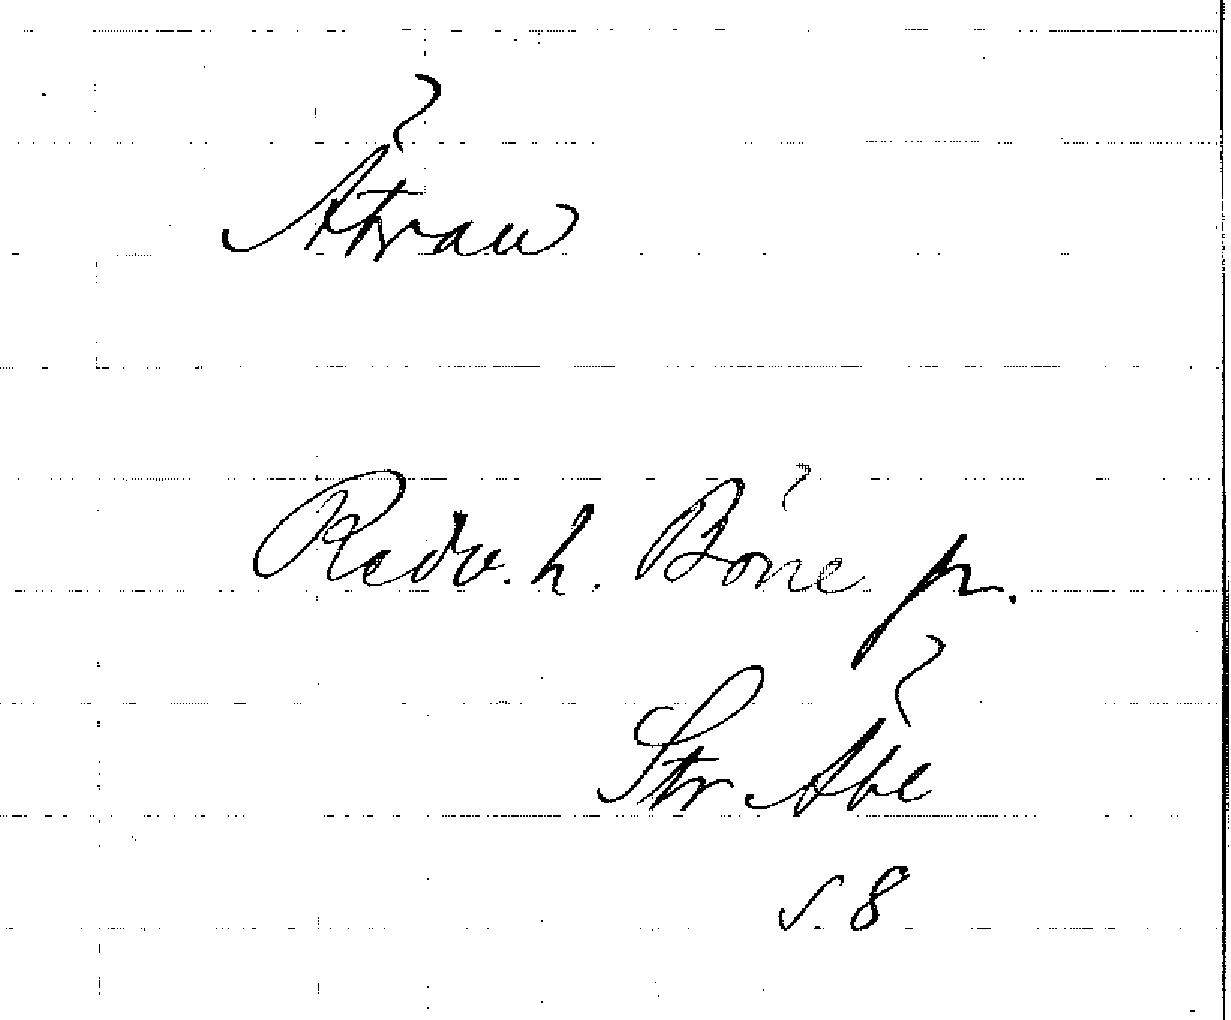 Ätraw
Redv. h. Böne pr.
Str. Äbe
s. 8